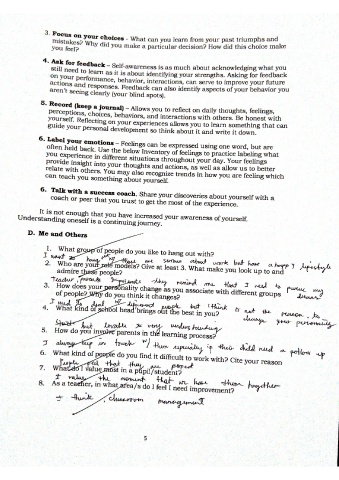 3. Focus on your choices - What can you learn from your past triumphs and
mistakes? Why did you make a particular decision? How did this choice make
you feel?
4. Ask for feedback – Self-awareness is as much about acknowledging what you
still need to learn as it is about identifying your strengths. Asking for feedback
on your performance, behavior, interactions, can serve to improve your future
actions and responses. Feedback can also identify aspects of your behavior you
aren't seeing clearly (your blind spots).
5. Record (keep a journal) – Allows you to reflect on daily thoughts, feelings,
perceptions, choices, behaviors, and interactions with others. Be honest with
yourself. Reflecting on your experiences allows you to learn something that can
guide your personal development so think about it and write it down.
6. Label your emotions – Feelings can be expressed using one word, but are
often held back. Use the below Inventory of feelings to practice labeling what
you experience in different situations throughout your day. Your feelings
provide insight into your thoughts and actions, as well as allow us to better
relate with others. You may also recognize trends in how you are feeling which
can teach you something about yourself.
6. Talk with a success coach. Share your discoveries about yourself with a
coach or peer that you trust to get the most of the experience.
It is not enough that you have increased your awareness of yourself.
Understanding oneself is a continuing journey.
D. Me and Others
1. What group of people do you like to hang out with?
I want to hang w/ those are serious about work but have a happy lifestyle
2. Who are your role models? Give at least 3. What make you look up to and
admire these people?
Teacher, Parents they remind me that I need to pursue my
3. How does your personality change as you associate with different groups
of people? Why do you think it changes?
dreams
I need to deal w/ different people but I think is not the reason to
4. What kind of school head brings out the best in you?
change your personality
Strict but lovable & very understanding
5. How do you involve parents in the learning process?
I always keep in touch w/ them especially if their child need a follow up
6. What kind of people do you find it difficult to work with? Cite your reason
People that they are
7. What do I value most in a pupil/student?
I value the moment that we have them together
8. As a teacher, in what area/s do I feel I need improvement?
I think, classroom management
5